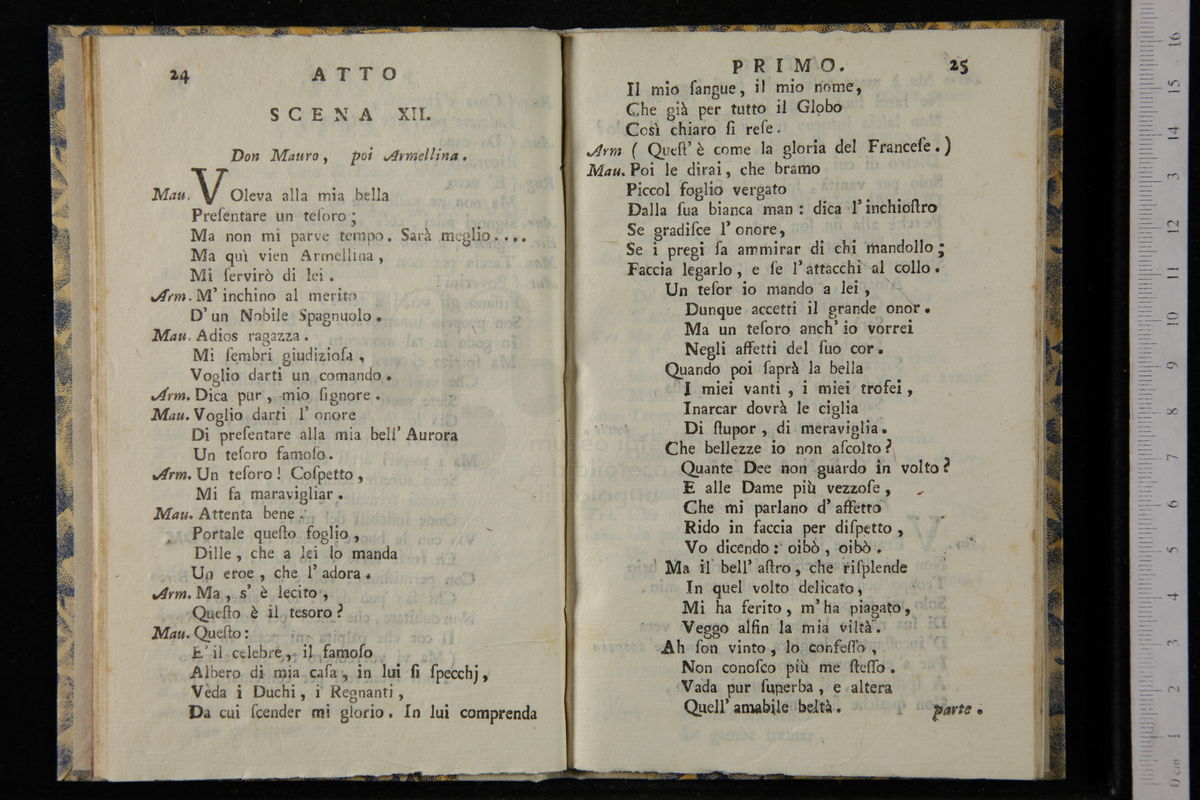 24 ATTO
SCENA XII.
Don Mauro, poi Armellina.
Mau. VOleva alla mia bella
Preſentare un teſoro;
Ma non mi parve tempo. Sarà meglio....
Ma quì vien Armellina,
Mi ſervirò di lei.
Arm. M'inchino al merito
D'un Nobile Spagnuolo.
Mau. Adios ragazza.
Mi ſembri giudizioſa,
Voglio darti un comando.
Arm. Dica pur, mio ſignore.
Mau. Voglio darti l'onore
Di preſentare alla mia bell'Aurora
Un teſoro famoſo.
Arm. Un teſoro! Coſpetto,
Mi fa maravigliar.
Mau. Attenta bene.
Portale queſto foglio,
Dille, che a lei lo manda
Un eroe, che l'adora.
Arm. Ma, s'è lecito,
Queſto è il tesoro?
Mau. Queſto:
E' il celebre, il famoſo
Albero di mia caſa, in lui ſi ſpecchj,
Veda i Duchi, i Regnanti,
Da cui ſcender mi glorio. In lui comprenda
PRIMO. 25
Il mio ſangue, il mio nome,
Che già per tutto il Globo
Così chiaro ſi reſe.
Arm ( Queſt'è come la gloria del Franceſe.)
Mau. Poi le dirai, che bramo
Piccol foglio vergato
Dalla ſua bianca man: dica l'inchioſtro
Se gradiſce l'onore,
Se i pregi ſa ammirar di chi mandollo;
Faccia legarlo, e ſe l'attacchi al collo.
Un teſor io mando a lei,
Dunque accetti il grande onor.
Ma un teſoro anch'io vorrei
Negli affetti del ſuo cor.
Quando poi ſaprà la bella
I miei vanti, i miei trofei,
Inarcar dovrà le ciglia
Di ſtupor, di meraviglia.
Che bellezze io non aſcolto?
Quante Dee non guardo in volto?
E alle Dame più vezzoſe,
Che mi parlano d'affetto
Rido in faccia per diſpetto,
Vo dicendo: oibò, oibò.
Ma il bell'aſtro, che riſplende
In quel volto delicato,
Mi ha ferito, m'ha piagato,
Veggo alfin la mia viltà.
Ah ſon vinto, lo confeſſo,
Non conoſco più me ſteſſo.
Vada pur ſuperba, e altera
Quell'amabile beltà. parte.